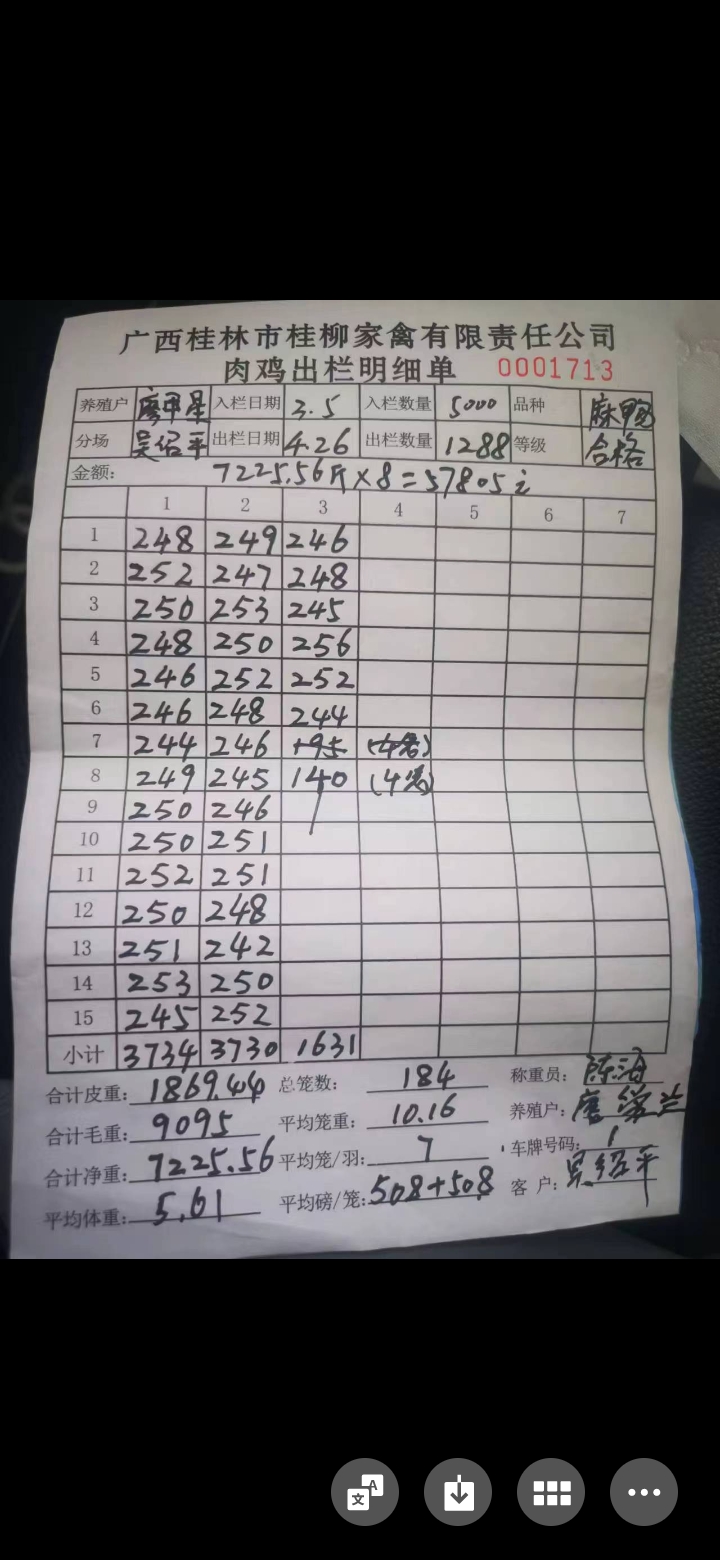 广西桂林市桂柳家禽有限责任公司
肉鸡出栏明细单 0001713
养殖户 入栏日期 3.5 入栏数量 5000 品种 麻鸭
分场 吴绍平 出栏日期 4.26 出栏数量 1288 等级 合格
金额: 7225.56斤×8=57805
1 2 3 4 5 6 7
1 248 249 246
2 252 247 248
3 250 253 245
4 248 250 256
5 246 252 252
6 246 248 244
7 244 246 195
8 249 245 140 (4笼)
9 250 246
10 250 251
11 252 251
12 250 248
13 251 242
14 253 250
15 245 252
小计 3734 3730 1631
合计皮重: 1869.44 总笼数: 184 称重员: 陈海
合计毛重: 9095 平均笼重: 10.16 养殖户:
合计净重: 7225.56 平均笼/羽: 7 车牌号码:
平均体重: 5.61 平均磅/笼: 508+508 客户: 吴绍平